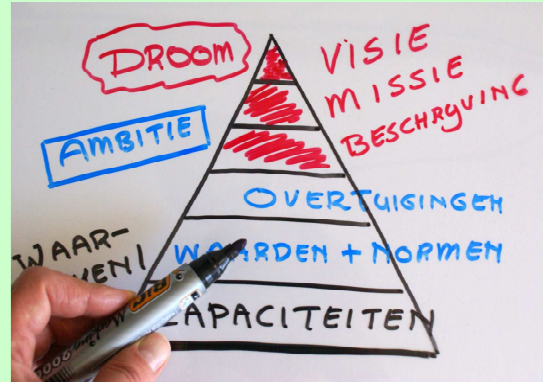 DROOM
VISIE
MISSIE
BESCHRYVING
AMBITIE
OVERTUIGINGEN
WAAR-
WAARDEN + NORMEN
CAPACITEITEN
BIC
2000